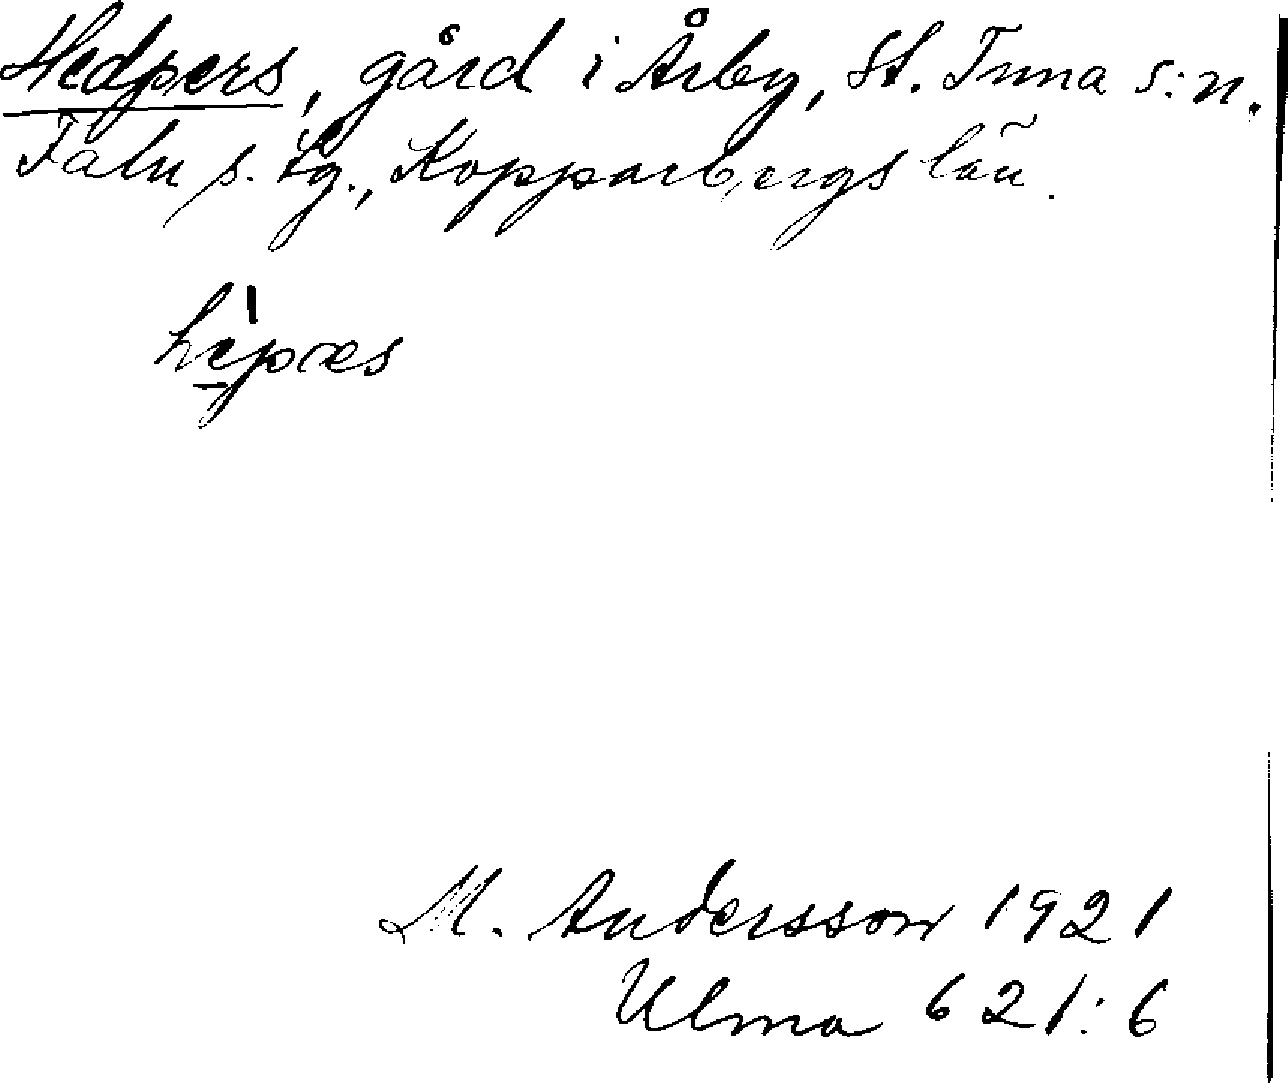 Hedpers, gård i Årby, St. Tuna s:n.
Falu s. tg., Kopparbergs län.
hepæs
M. Andersson 1921
Ulma 621:6